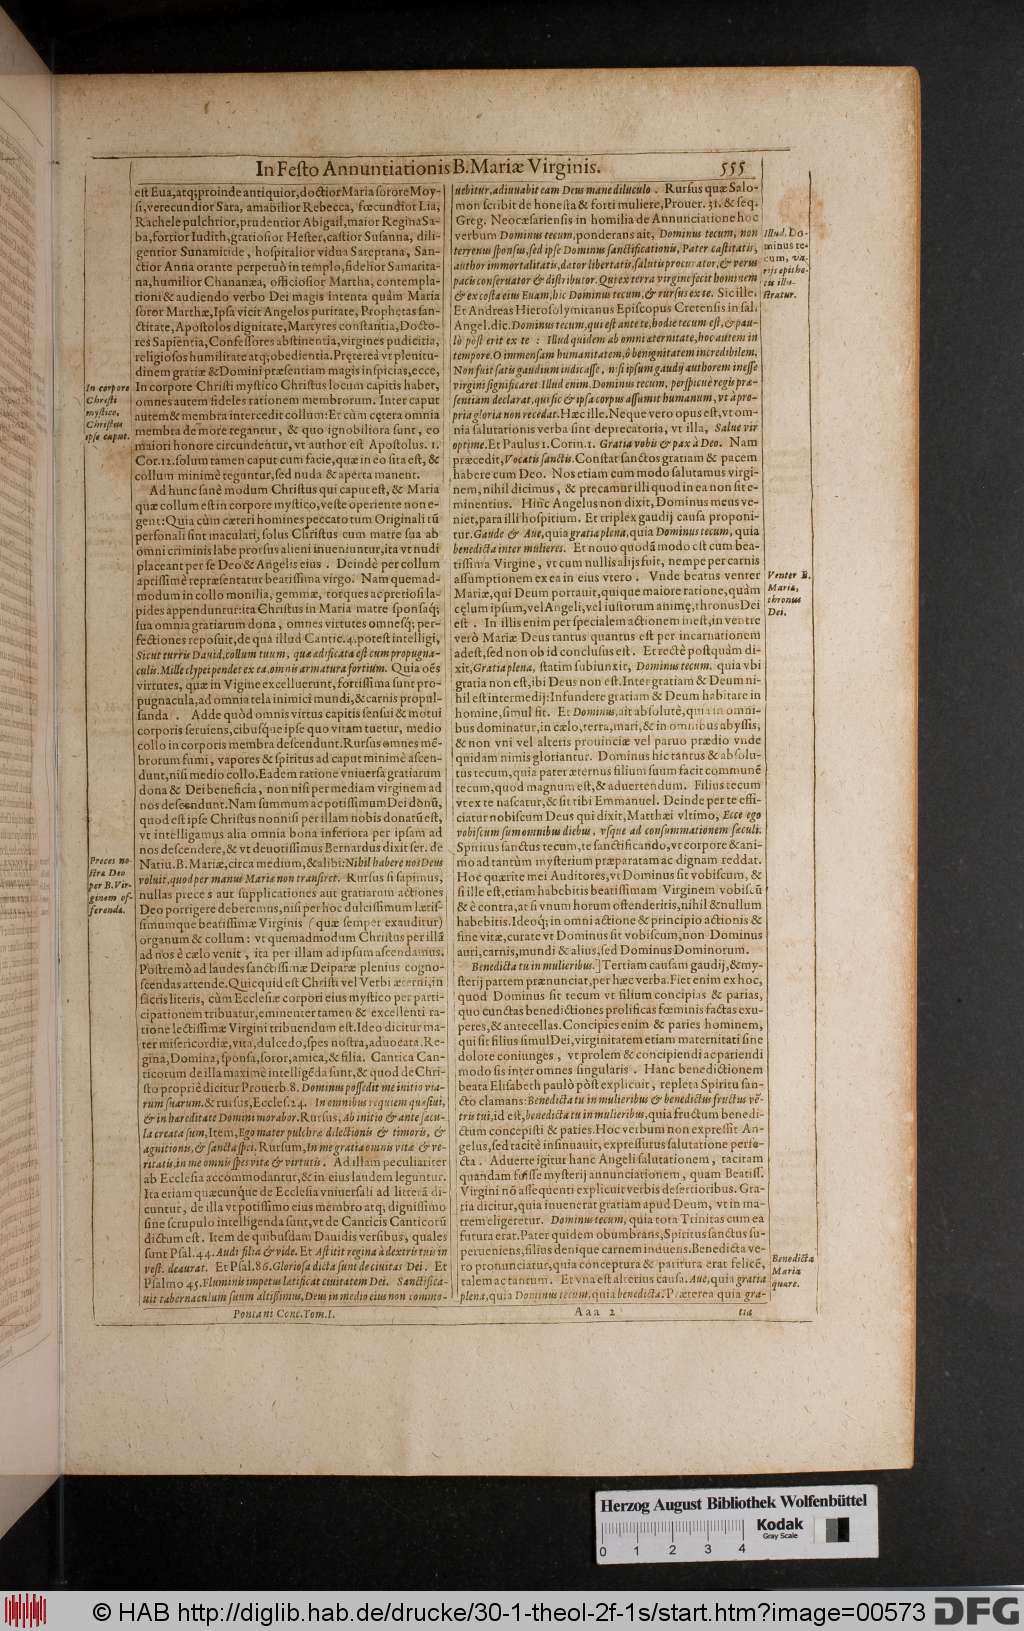 In Festo Annuntiationis B. Mariæ Virginis. 555
est Eua, atq; proinde antiquior, doctior Maria sorore Moy-
si, verecundior Sara, amabilior Rebecca, fœcundior Lia,
Rachele pulchrior, prudentior Abigail, maior Regina Sa-
ba, fortior Iudith, gratiosior Hester, castior Susanna, dili-
gentior Sunamitide, hospitalior vidua Sareptana, San-
ctior Anna orante perpetuò in templo, fidelior Samarita-
na, humilior Chananæa, officiosior Martha, contempla-
tioni & audiendo verbo Dei magis intenta quàm Maria
soror Marthæ, Ipsa vicit Angelos puritate, Prophetas san-
ctitate, Apostolos dignitate, Martyres constantia, Docto-
res Sapientia, Confessores abstinentia, virgines pudicitia,
religiosos humilitate atq; obedientia. Prętereà vt plenitu-
dinem gratiæ & Domini præsentiam magis inspicias, ecce,
In corpore Christi mystico Christus locum capitis habet,
omnes autem fideles rationem membrorum. Inter caput
autem & membra intercedit collum: Et cùm cętera omnia
membra de more tegantur, & quo ignobiliora sunt, eo
maiori honore circundentur, vt author est Apostolus. 1.
Cor. 12. solum tamen caput cum facie, quæ in eo sita est, &
collum minimè teguntur, sed nuda & aperta manent.
Ad hunc sanè modum Christus qui caput est, & Maria
quæ collum est in corpore mystico, veste operiente non e-
gent: Quia cùm cæteri homines peccato tum Originali tũ
personali sint maculati, solus Christus cum matre sua ab
omni criminis labe prorsus alieni inueniuntur, ita vt nudi
placeant per se Deo & Angelis eius. Deindè per collum
aptissimè repræsentatur beatissima virgo. Nam quemad-
modum in collo monilia, gemmæ, torques ac pretiosi la-
pides appenduntur: ita Christus in Maria matre sponsaq;
sua omnia gratiarum dona, omnes virtutes omnesq; per-
fectiones reposuit, de qua illud Cantic. 4. potest intelligi,
Sicut turris Dauid, collum tuum, quæ ædificata est cum propugna-
culis. Mille clypei pendet ex ea, omnis armatura fortium. Quia oẽs
virtutes, quæ in Vigine excelluerunt, fortissima sunt pro-
pugnacula, ad omnia tela inimici mundi, & carnis propul-
sanda. Adde quòd omnis virtus capitis sensui & motui
corporis seruiens, cibusque ipse quo vitam tuetur, medio
collo in corporis membra descendunt. Rursus omnes mẽ-
brorum fumi, vapores & spiritus ad caput minimè ascen-
dunt, nisi medio collo. Eadem ratione vniuersa gratiarum
dona & Dei beneficia, non nisi per mediam virginem ad
nos descendunt. Nam summum ac potissimum Dei donũ,
quod est ipse Christus nonnisi per illam nobis donatũ est,
vt intelligamus alia omnia bona inferiora per ipsam ad
nos descendere, & vt deuotissimus Bernardus dixit ser. de
Natiu. B. Mariæ, circa medium, & alibi: Nihil habere nos Deus
voluit, quod per manus Mariæ non transiret. Rursus si sapimus,
nullas preces aut supplicationes aut gratiarum actiones
Deo porrigere deberemus, nisi per hoc dulcissimum lætis-
simumque beatissimæ Virginis (quæ semper exauditur)
organum & collum: vt quemadmodum Christus per illã
ad nos è cælo venit, ita per illam ad ipsum ascendamus.
Postremò ad laudes sanctissimæ Deiparæ plenius cogno-
scendas attende. Quicquid est Christi vel Verbi æterni, in
sacris literis, cùm Ecclesiæ corpori eius mystico per parti-
cipationem tribuatur, eminenter tamen & excellenti ra-
tione lectissimæ Virgini tribuendum est. Ideo dicitur ma-
ter misericordiæ, vita, dulcedo, spes nostra, aduocata. Re-
gina, Domina, sponsa, soror, amica, & filia. Cantica Can-
ticorum de illa maximè intelligẽda sunt, & quod de Chri-
sto propriè dicitur Prouerb. 8. Dominus possedit me initio via-
rum suarum. & rursus, Eccles. 24. In omnibus requiem quæsiui,
& in hæreditate Domini morabor. Rursus, Ab initio & ante sæcu-
la creata sum, Item, Ego mater pulchræ dilectionis & timoris, &
agnitionis, & sanctæ spei. Rursum, In me gratia omnis vitæ & ve-
ritatis, in me omnis spes vitæ & virtutis. Ad illam peculiariter
ab Ecclesia accommodantur, & in eius laudem leguntur.
Ita etiam quæcunque de Ecclesia vniuersali ad litterã di-
cuntur, de illa vt potissimo eius membro atq; dignissimo
sine scrupulo intelligenda sunt, vt de Canticis Canticorũ
dictum est. Item de quibusdam Dauidis versibus, quales
sunt Psal. 44. Audi filia & vide. Et Astitit regina à dextris tuis in
vest. deaurat. Et Psal. 86. Gloriosa dicta sunt de ciuitas Dei. Et
Psalmo 45. Fluminis impetus lætificat ciuitatem Dei. Sanctifica-
uit tabernaculum suum altissimus, Deus in medio eius non commo-
In corpore
Christi
mystico,
Christus
ipse caput.
Preces no-
stræ Deo
per B. Vir-
ginem of-
ferendæ.
Pontani Conc. Tom. I.
uebitur, adiuuabit eam Deus mane diluculo. Rursus quæ Salo-
mon scribit de honesta & forti muliere, Prouer. 31. & seq.
Greg. Neocæsariensis in homilia de Annunciatione hoc
verbum Dominus tecum, ponderans ait, Dominus tecum, non
terrenus sponsus, sed ipse Dominus sanctificationis, Pater castitatis,
author immortalitatis, dator libertatis, salutis procurator, & verus
pacis conseruator & distributor. Qui ex terra virgine fecit hominem
& ex costa eius Euam, hic Dominus tecum, & rursus ex te. Sic ille.
Et Andreas Hierosolymitanus Episcopus Cretensis in sal.
Angel. dic. Dominus tecum, qui est ante te, hodie tecum est, & pau-
lò pòst erit ex te: Illud quidem ab omni æternitate, hoc autem in
tempore. O immensam humanitatem, ô benignitatem incredibilem.
Non fuit satis gaudium indicasse, nisi ipsum gaudij authorem inesse
virgini significaret Illud enim. Dominus tecum, perspicuè regis præ-
sentiam declarat, qui sic & ipsa corpus assumit humanum, vt à pro-
pria gloria non recedat. Hæc ille. Neque vero opus est, vt om-
nia salutationis verba sint deprecatoria, vt illa, Salue vir
optime. Et Paulus 1. Corin. 1. Gratia vobis & pax à Deo. Nam
præcedit, Vocatis sanctis. Constat sanctos gratiam & pacem
habere cum Deo. Nos etiam cum modo salutamus virgi-
nem, nihil dicimus, & precamur illi quod in ea non sit e-
minentius. Hinc Angelus non dixit, Dominus meus ve-
niet, para illi hospitium. Et triplex gaudij causa proponi-
tur. Gaude & Aue, quia gratia plena, quia Dominus tecum, quia
benedicta inter mulieres. Et nouo quodã modo est cum bea-
tissima Virgine, vt cum nullis alijs fuit, nempe per carnis
assumptionem ex ea in eius vtero. Vnde beatus venter
Mariæ, qui Deum portauit, quique maiore ratione, quàm
cęlum ipsum, vel Angeli, vel iustorum animę, thronus Dei
est. In illis enim per specialem actionem inest, in ventre
verò Mariæ Deus tantus quantus est per incarnationem
adest, sed non ob id conclusus est. Et rectè postquàm di-
xit, Gratia plena, statim subiunxit, Dominus tecum. quia vbi
gratia non est, ibi Deus non est. Inter gratiam & Deum ni-
hil est intermedij: Infundere gratiam & Deum habitare in
homine, simul fit. Et Dominus, ait absolutè, quia in omni-
bus dominatur, in cælo, terra, mari, & in omnibus abyssis,
& non vni vel alteris prouinciæ vel paruo prædio vnde
quidam nimis gloriantur. Dominus hic tantus & absolu-
tus tecum, quia pater æternus filium suum facit communẽ
tecum, quod magnum est, & aduertendum. Filius tecum
vt ex te nascatur, & sit tibi Emmanuel. Deinde per te effi-
ciatur nobiscum Deus qui dixit, Matthæi vltimo, Ecce ego
vobiscum sum omnibus diebus, vsque ad consummationem sæculi.
Spiritus sanctus tecum, te sanctificando, vt corpore & ani-
mo ad tantùm mysterium præparatam ac dignam reddat.
Hoc quærite mei Auditores, vt Dominus sit vobiscum, &
si ille est, etiam habebitis beatissimam Virginem vobiscũ
& è contra, at si vnum horum ostenderitis, nihil & nullum
habebitis. Ideoq; in omni actione & principio actionis &
fine vitæ, curate vt Dominus sit vobiscum, non Dominus
auri, carnis, mundi & alius, sed Dominus Dominorum.
Benedicta tu in mulieribus.] Tertiam causam gaudij, & my-
sterij partem prænunciat, per hæc verba. Fiet enim ex hoc,
quod Dominus sit tecum vt filium concipias & parias,
quo cunctas benedictiones prolificas fœminis factas exu-
peres, & antecellas. Concipies enim & paries hominem,
qui sit filius simul Dei, virginitatem etiam maternitati sine
dolore coniunges, vt prolem & concipiendi ac pariendi
modo sis inter omnes singularis. Hanc benedictionem
beata Elisabeth paulò pòst explicuit, repleta Spiritu san-
cto clamans: Benedicta tu in mulieribus & benedictus fructus vẽ-
tris tui, id est, benedicta tu in mulieribus, quia fructum benedi-
ctum concepisti & paries. Hoc verbum non expressit An-
gelus, sed tacitè insinuauit, expressurus salutatione perfe-
cta. Aduerte igitur hanc Angeli salutationem, tacitam
quandam fuisse mysterij annunciationem, quam Beatiss.
Virgini nõ assequenti explicuit verbis desertioribus. Gra-
tia dicitur, quia inuenerat gratiam apud Deum, vt in ma-
trem eligeretur. Dominus tecum, quia tota Trinitas cum ea
futura erat. Pater quidem obumbrans, Spiritus sanctus su-
perueniens, filius denique carnem induens. Benedicta ve-
ro pronunciatur, quia conceptura & paritura erat felicẽ,
talem ac tantum. Et vna est alterius causa. Aue, quia gratia
plena, quia Dominus tecum, quia benedicta. Præterea quia gra-
Illud, Do-
minus te-
cum, va-
rijs epitho-
tis illu-
stratur.
Venter B.
Mariæ,
thronus
Dei.
Benedicta
Maria
quare.
Aaa 2 tia
Herzog August Bibliothek Wolfenbüttel
Kodak
Gray Scale
0 1 2 3 4
© HAB http://diglib.hab.de/drucke/30-1-theol-2f-1s/start.htm?image=00573 DFG